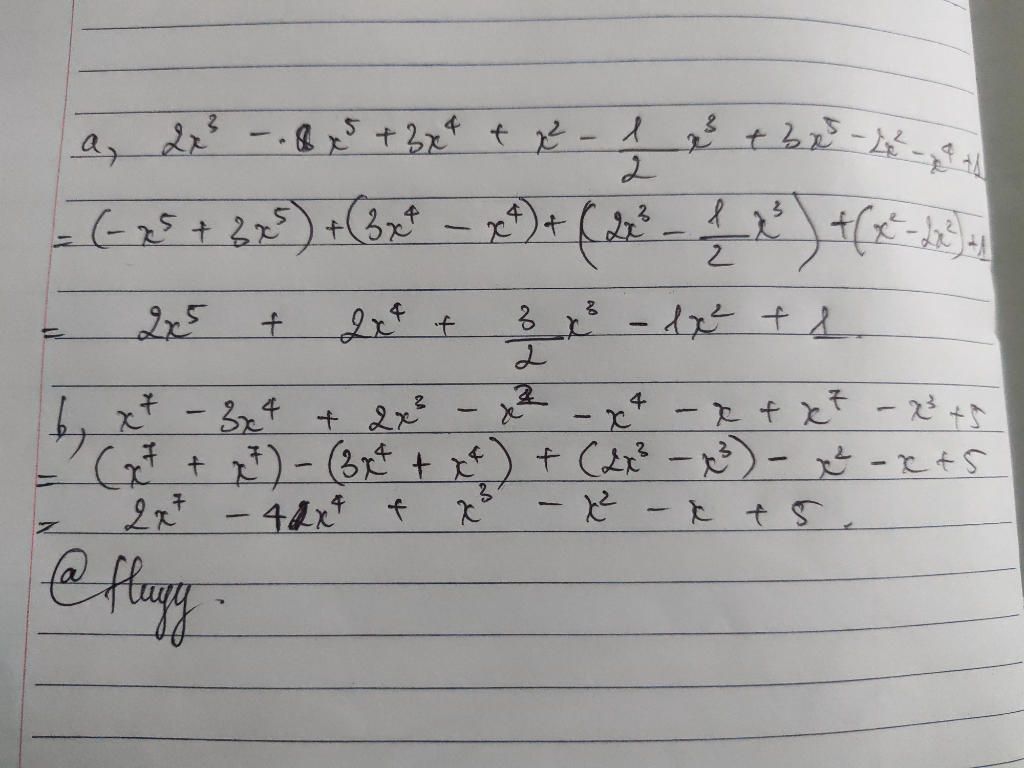 a, 2x³ - x⁵ + 3x⁴ + x² - 1/2 x³ + 3x⁵ - 2x² - x⁴ + 1
= (-x⁵ + 3x⁵) + (3x⁴ - x⁴) + (2x³ - 1/2 x³) + (x² - 2x²) + 1
= 2x⁵ + 2x⁴ + 3/2 x³ - 1x² + 1
b, x⁷ - 3x⁴ + 2x³ - x² - x⁴ - x + x⁷ - x³ + 5
= (x⁷ + x⁷) - (3x⁴ + x⁴) + (2x³ - x³) - x² - x + 5
= 2x⁷ - 4x⁴ + x³ - x² - x + 5.